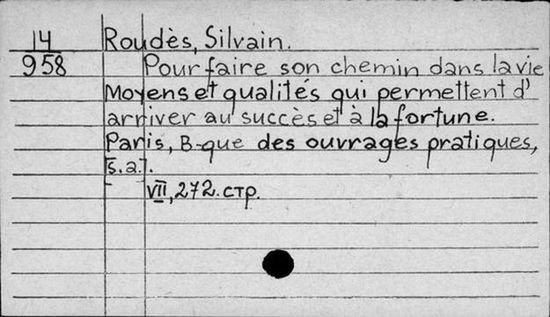 14 Roudès, Silvain.
958 Pour faire son chemin dans la vie
Moyens et qualités qui permettent d'
arriver au succès et à la fortune.
Paris, B-que des ouvrages pratiques,
s.a.
VII, 272. стр.